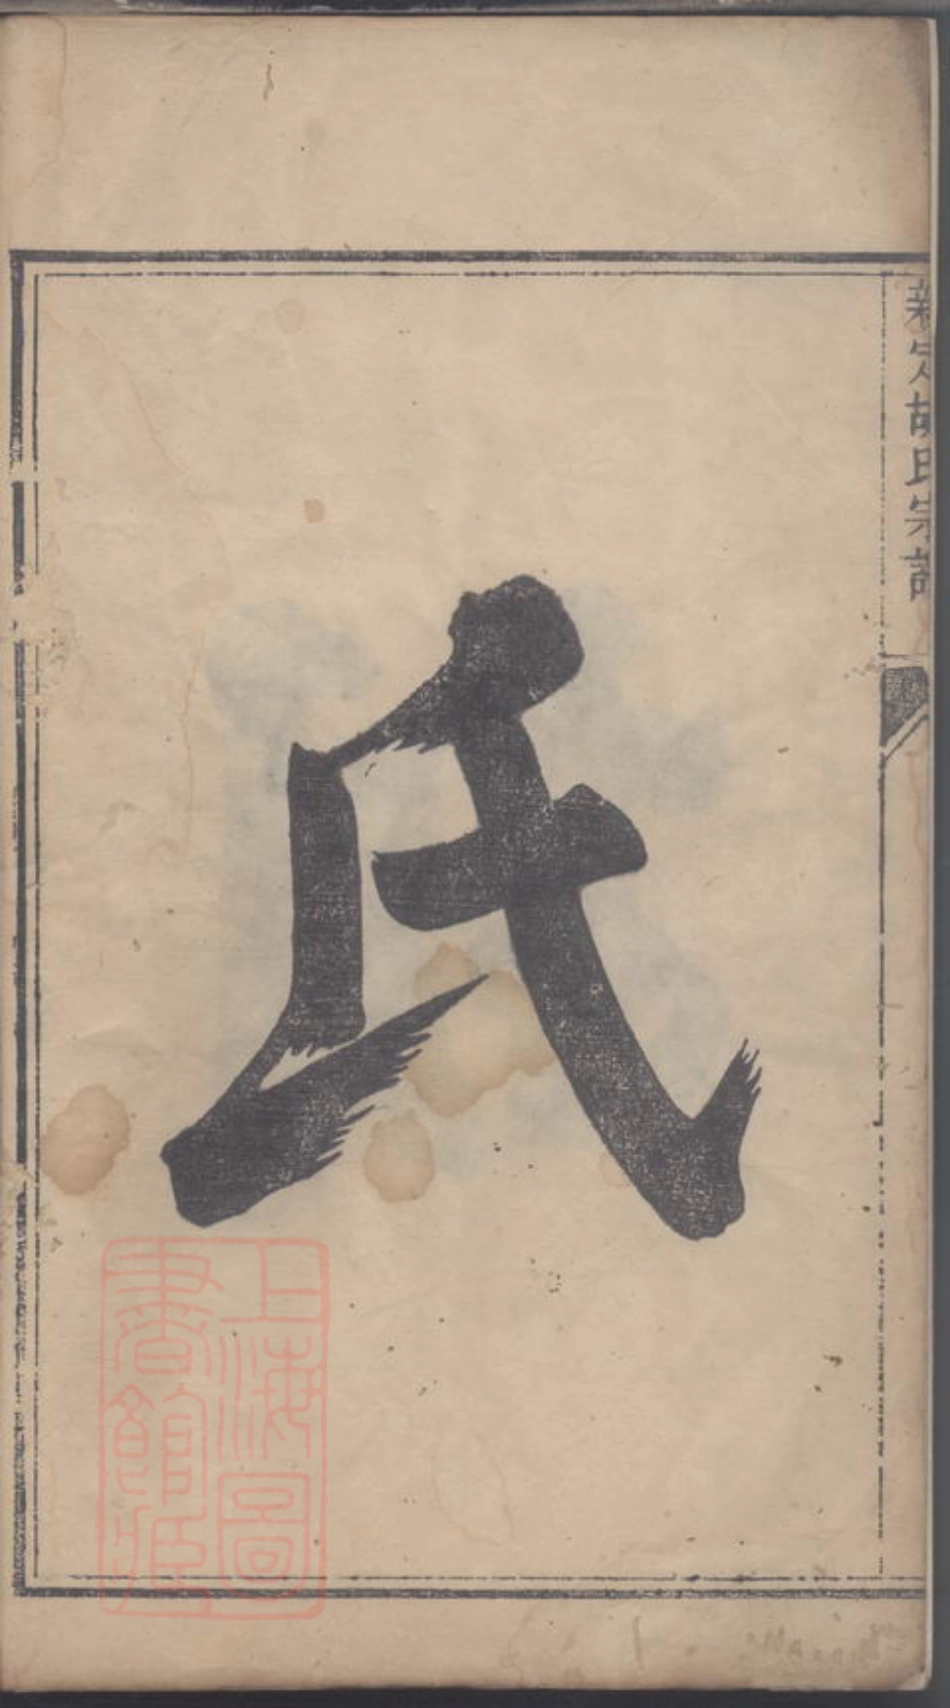 新胡氏宗譜
氏
上海圖
書館藏